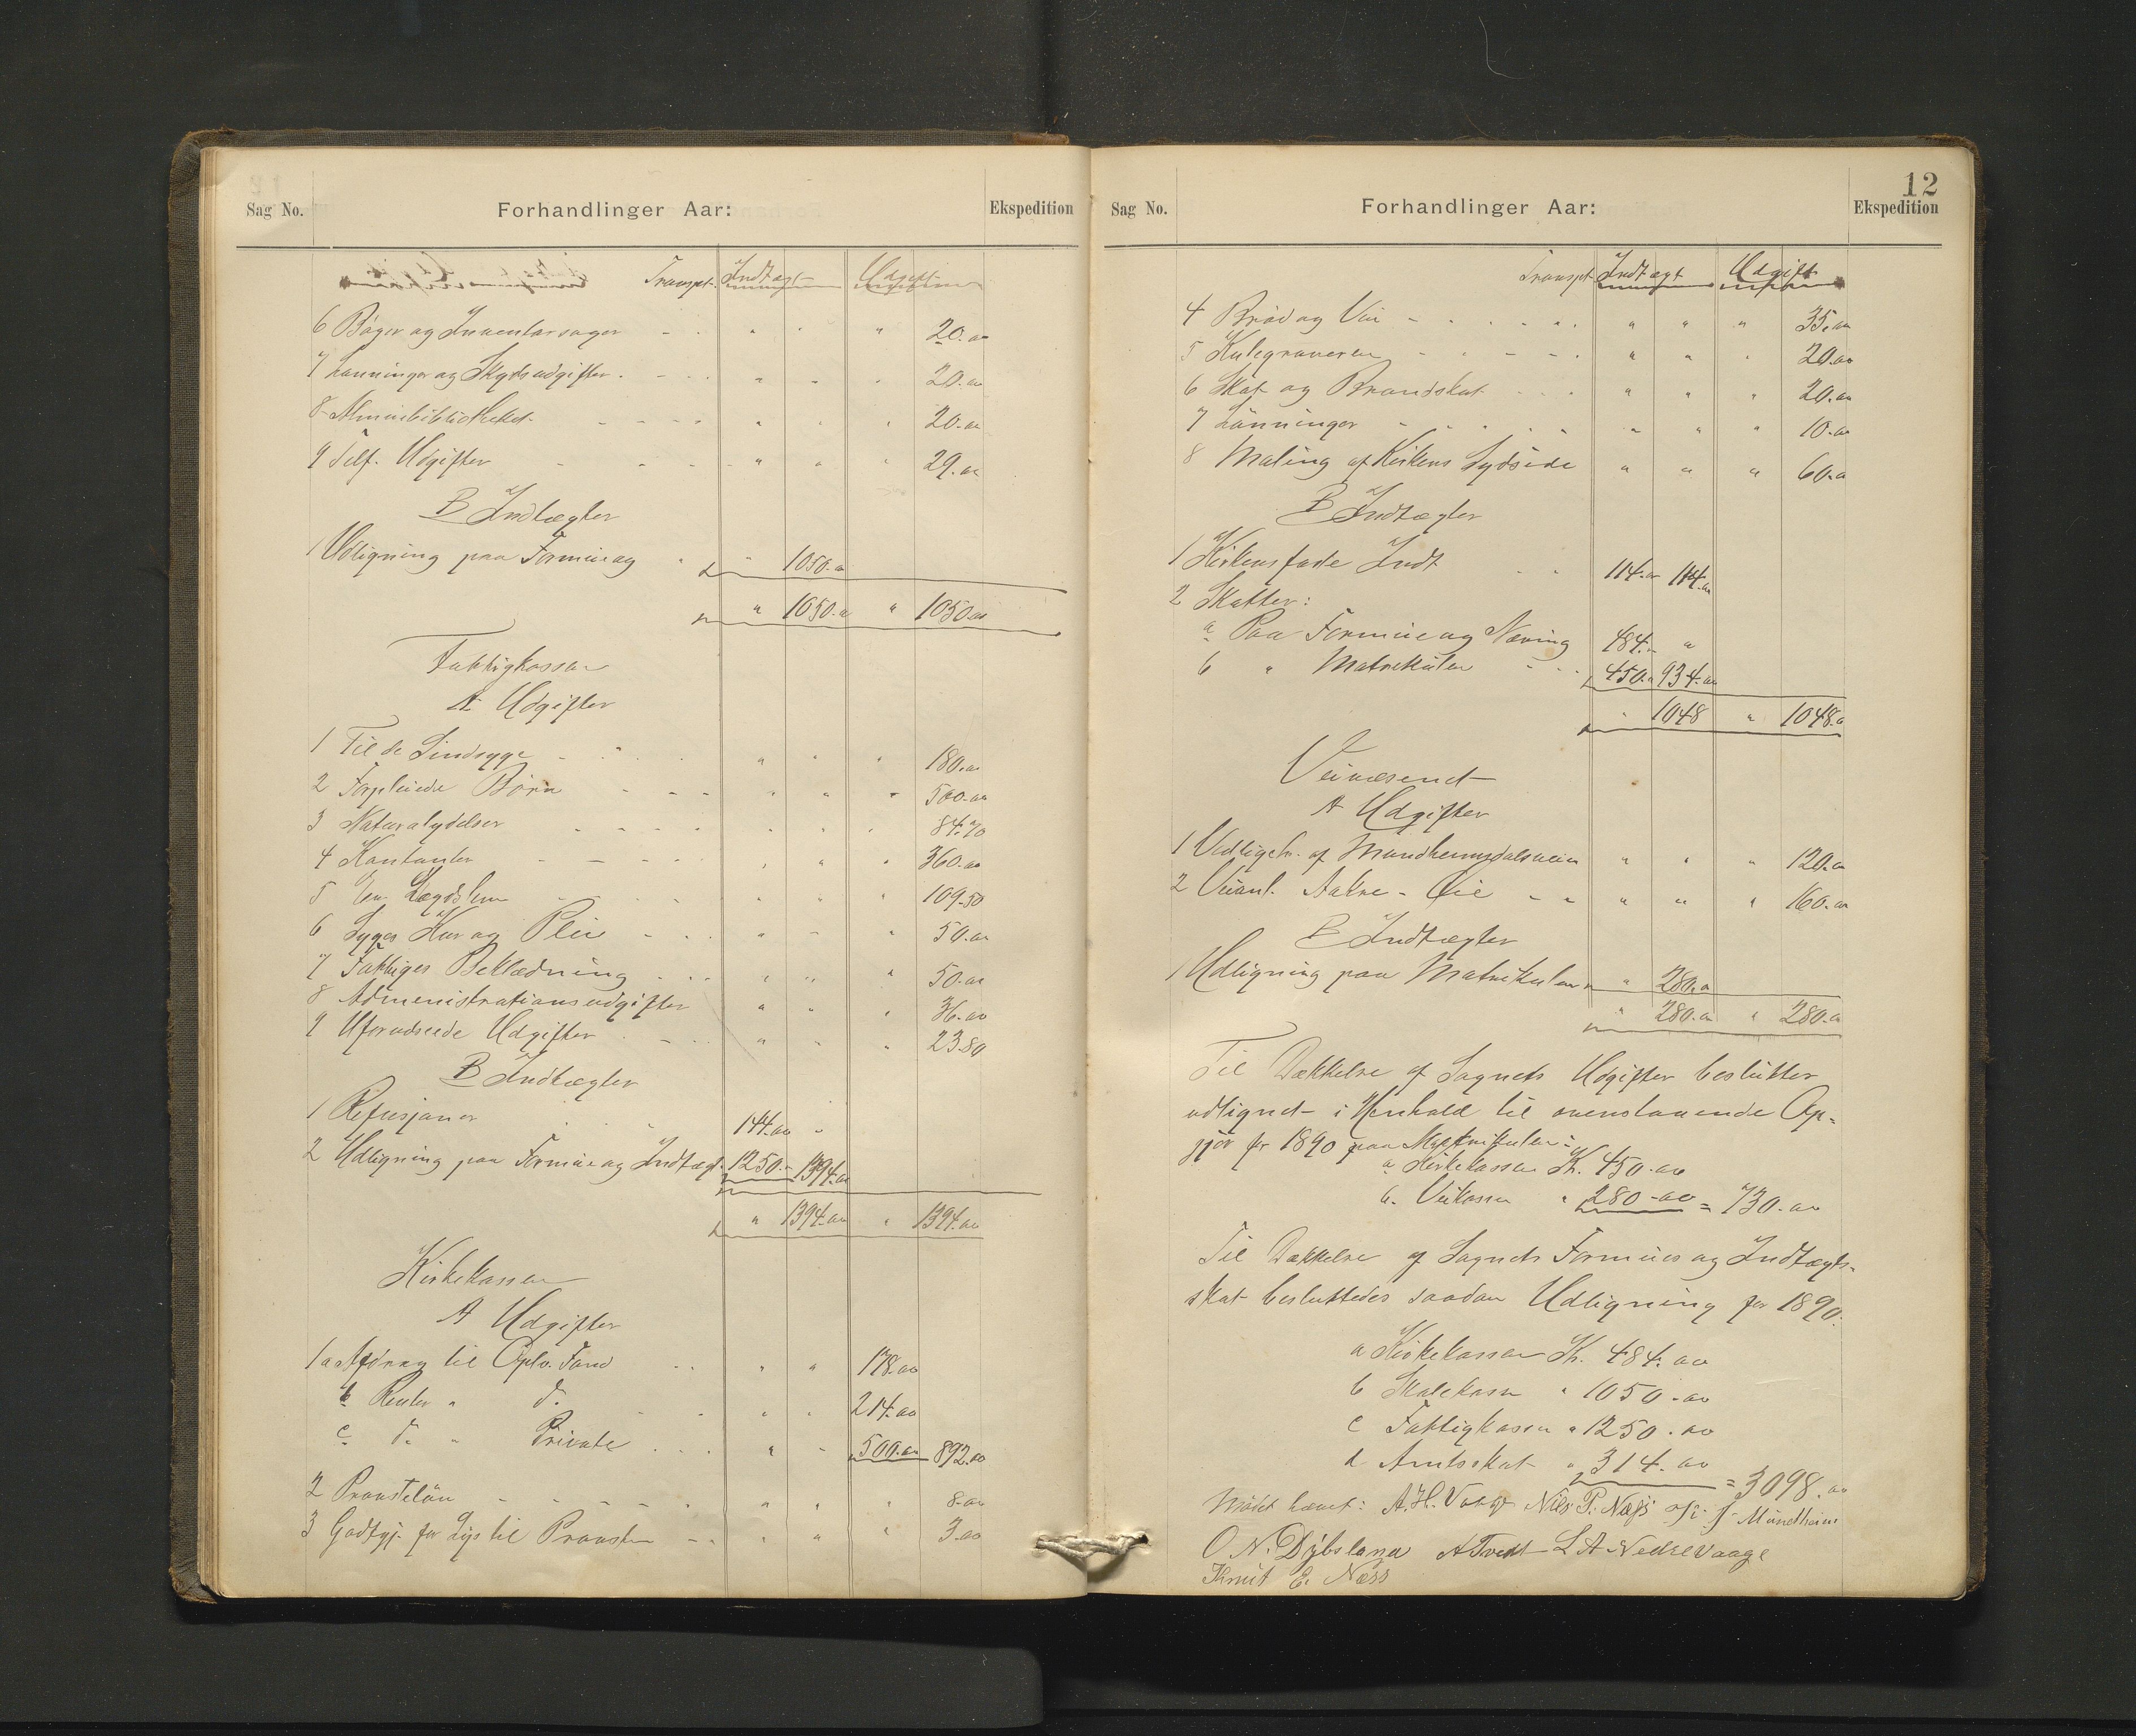 Sag No. Forhandlinger Aar: Ekspedition
Transpt. Indtægt Udgift
6 Bøger og Inventarsager " " " 20.00
7 Lønninger og Skydsudgifter. " " " 20.00
8 Almuebibliotheket " " " 20.00
9 Tilf. Udgifter " " " 29.00
B Indtægter
1 Udligning paa Formue og " " 1050.00
" 1050.00 " 1050.00
Fattigkassen
A Udgifter
1 Til de Sindsyge " " " 180.00
2 Forpleiede Børn " " " 500.00
3 Naturalydelser " " " 84.70
4 Kontanter " " " 360.00
5 En Lægdslem " " " 109.50
6 Syges Kur og Pleie " " " 50.00
7 Fattiges Beklædning " " " 50.00
8 Administrationsudgifter " " " 36.00
9 Uforudseede Udgifter " " " 23.80
B Indtægter
1 Refusjoner 144.00 "
2 Udligning paa Formue og Indtægt 1250.- 1394.00
" 1394.00 " 1394.00
Kirkekassen
A Udgifter
1 a Afdrag til Oplv. Fond " " 178.00
b Renter " d. " " 214.00
c d. " Private " " 500.00 892.00
2 Provstelön " " " 8.00
3 Godtgj. for Lys til Provsten " " " 3.00
12
Sag No. Forhandlinger Aar: Ekspedition
Transpt Indtægt Udgift
4 Brød og Vin " " " 35.00
5 Kulegraveren " " " 20.00
6 Skat og Brandskat " " " 20.00
7 Lönninger " " " 10.00
8 Maling af Kirkens Sydside " " " 60.00
B Indtægter
1 Kirkens faste Indt 114.00 114.00
2 Skatter:
a Paa Formue og Næring 484.- "
b " Matrikulen 450.- 934.00
" 1048 " 1048.00
Veivæsenet
A Udgifter
1 Vedligeh. af Mundheimsdalsveien " " " 120.00
2 Veianl. Aakre - Øie " " " 160.00
B Indtægter
1 Udligning paa Matrikulen " 280.00
" 280.00 " 280.00
Til Dækkelse af Sognets Udgifter beslutter
udlignet i Henhold til ovenstaaende Op-
gjør for 1890 paa Matrikulen:
a Kirkekassen Kr. 450.00
b. Veikassen " 280-00 = 730.00
Til Dækkelse af Sognets Formues og Indtægts-
skat besluttedes saadan Udligning for 1890:
a Kirkekassen Kr. 484.00
b Skolekassen " 1050.00
c Fattigkassen " 1250.00
d Amtsskat " 314.00
= 3098.00
Mödet hævet: Nils P. Næss Mundheim
O N. Dybsland A Tvedt L A Nedrevaage
Knut E. Næss